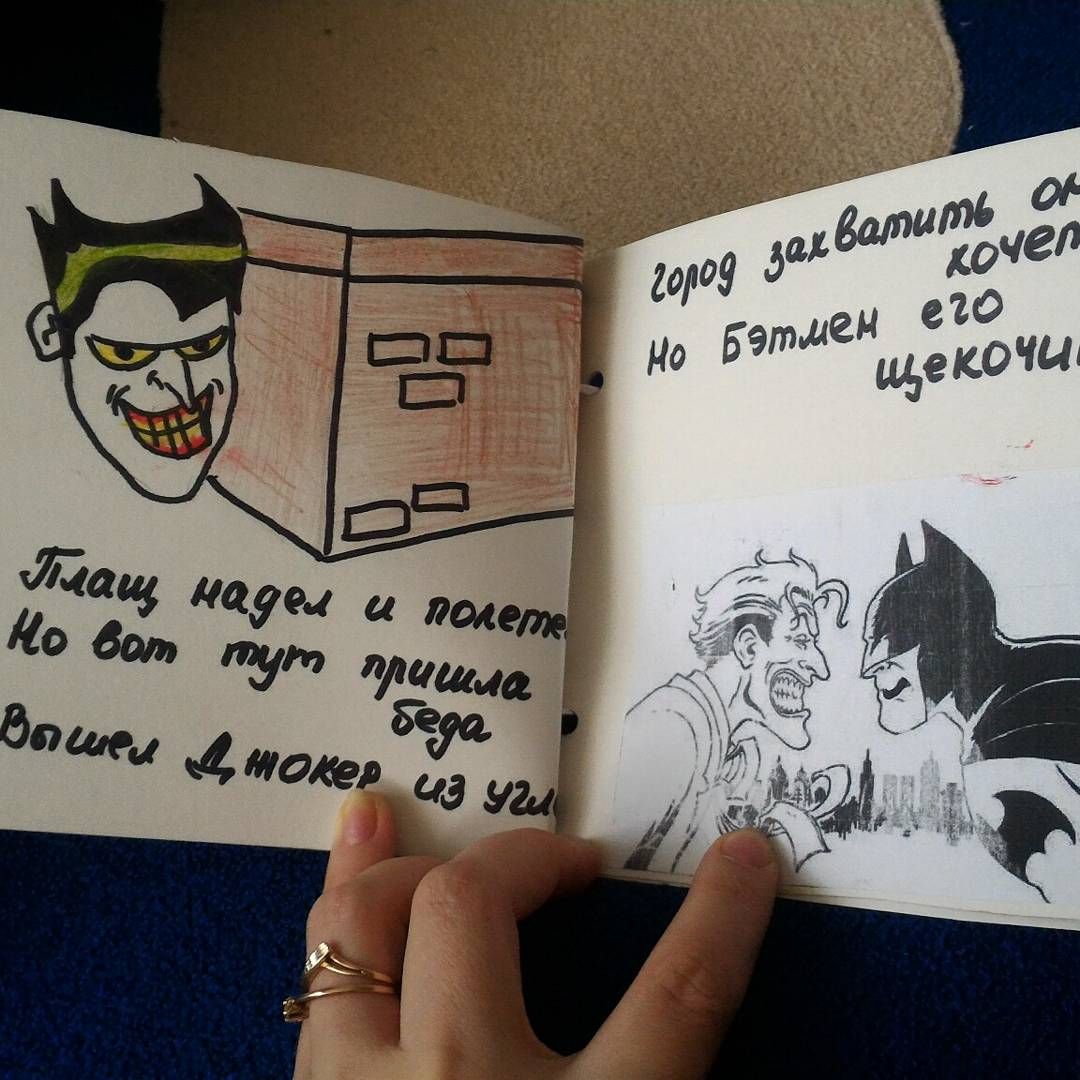 Плащ надел и полете
Но вот тут пришла
беда
Вышел Джокер из угл
город захватить он
хочет
Но Бэтмен его
щекочи